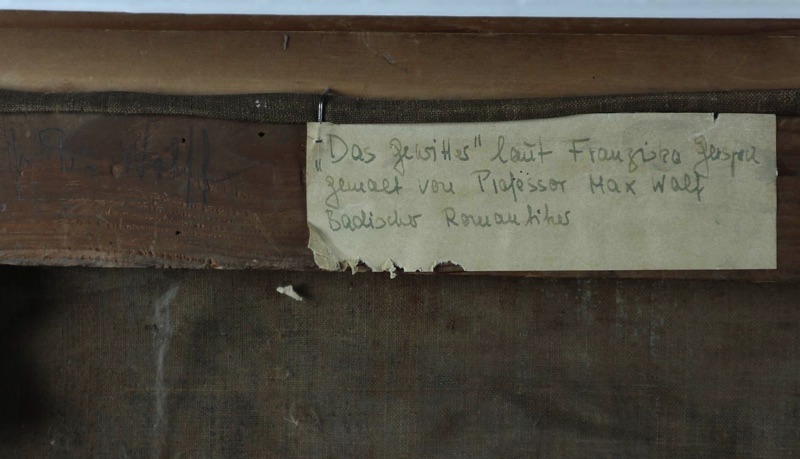 Wolff
„Das Gewitter" laut Franziska
gemalt von Professor Max Wolf
Badischer Romantiker